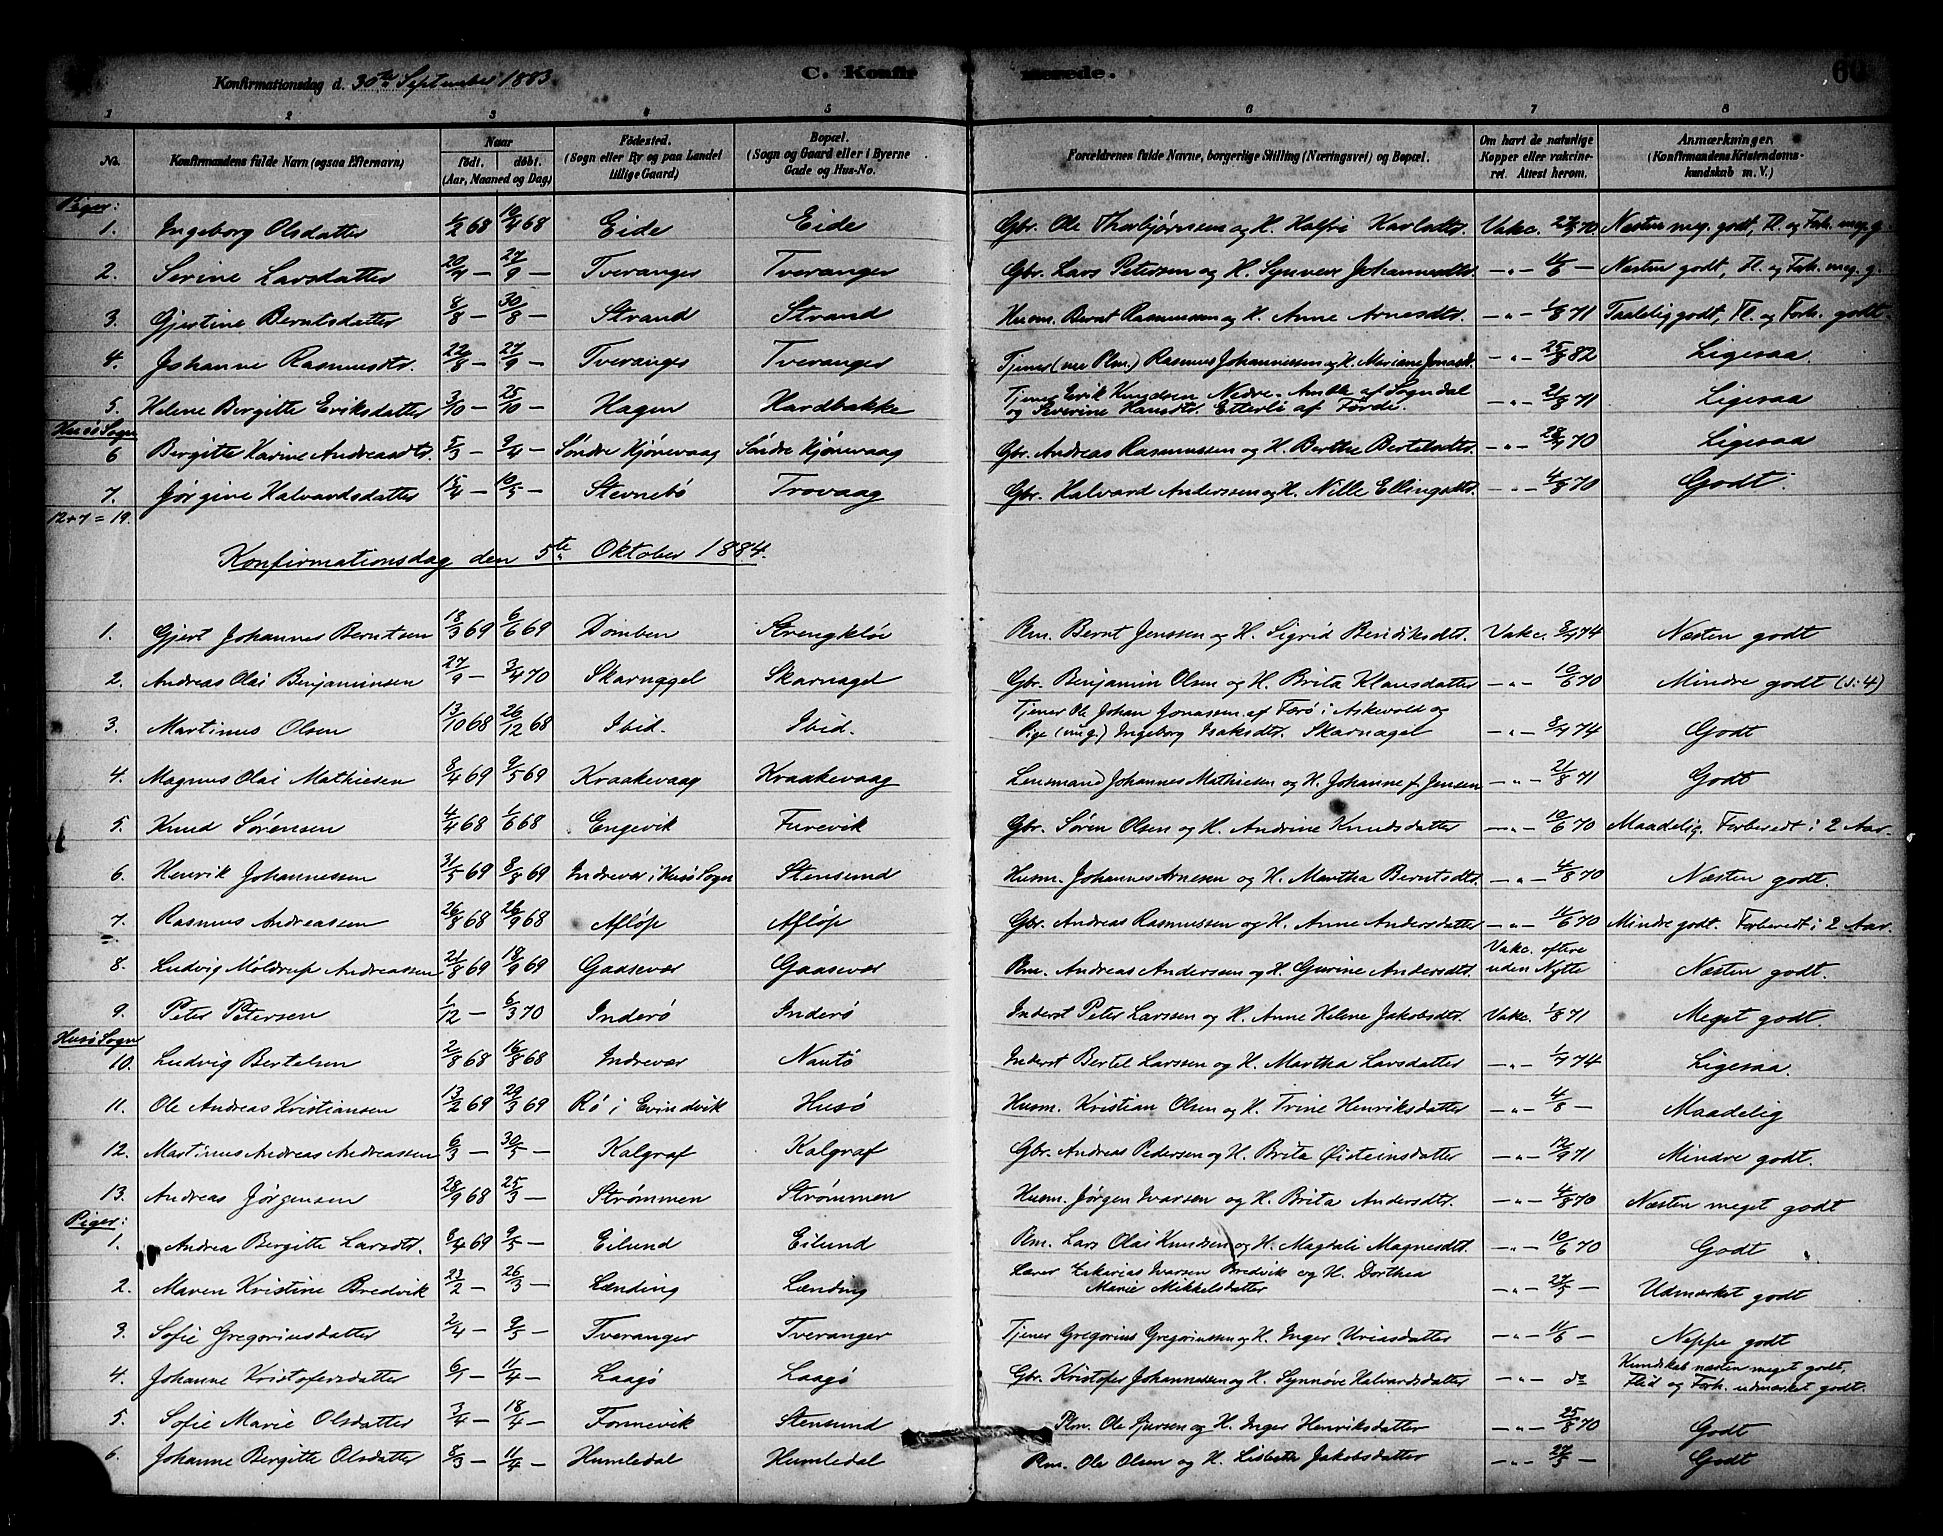 Konfirmationsdag d. 30te September 1883. C. Konfirmerede. 60
1 2 3 4 5 6 7 8
No. Konfirmandens fulde Navn (ogsaa Efternavn) Naar født. døbt. (Aar, Maaned og Dag) Fødested. (Sogn eller By og paa Landet tillige Gaard) Bopæl. (Sogn og Gaard eller i Byerne Gade og Hus-No. Forældrenes fulde Navne, borgerlige Stilling (Næringsvei) og Bopæl. Om havt de naturlige Kopper eller vakcineret. Attest herom. Anmærkninger. (Konfirmandens Kristendomskundskab m. V.)
Piger:
1. Ingeborg Olsdatter 1/2 68 10/4 68 Eide Eide Gbr. Ole Thorbjørnsen og H. Halfri Karlsdatter. Vakc. 70 Næsten meg. godt, Fl. og Forh. meg. g.
2. Serine Larsdatter 20/4 — 27/9 — Tveranger Tveranger Gbr. Lars Petersen og H. Synneve Johannesdtr —"— 11/6 — Næsten godt, Fl. og Forh. meg. g.
3. Gjertine Berntsdatter 8/8 — 30/8 — Strand Strand Husm. Bernt Rasmussen og H. Anne Arnesdtr. —"— 1/8 71 Taalelig godt, Fl. og Forh. godt.
4. Johanne Rasmusdtr. 22/8 — 27/9 — Tveranger Tveranger Tjener (nu Plm.) Rasmus Johannessen og H. Mariane Jonasdt. —"— 25/8 82 Ligesaa.
5. Helene Bergitte Eriksdatter 3/10 — 25/10 — Hagen Hardbakke Tjener Erik Knudsen Nedre-Amble af Sogndal
og Severine Hansdtr. Etterlø af Førde. —"— 21/8 71 Ligesaa
Husø Sogn
6 Bergitte Karine Andreasdtr. 5/3 — 9/4 — Søndre Kjørevaag Søndre Kjørevaag Gbr. Andreas Rasmussen og H. Berthe Bertelsdtr. —"— 28/7 70 Ligesaa
7. Jørgine Halvardsdatter 15/4 — 10/5 — Stevnebø Trovaag Gbr. Halvard Anderssen og H. Nille Ellingsdtr. —"— 4/8 70 Godt.
12+7=19.
Konfirmationsdag den 5te Oktober 1884.
1. Gjert Johannes Berntsen 18/3 69 6/6 69 Domben Strengklør Rm. Bernt Jenssen og H. Sigrid Bendiksdtr. Vakc. 8/7 74 Næsten godt
2. Andreas Olai Benjaminsen 27/9 — 3/4 70 Skarnagel Skarnagel Gbr. Benjamin Olsen og H. Brita Klausdatter —"— 10/6 70 Mindre godt (s: 4)
3. Martinus Olsen 13/10 68 26/12 68 Ibid. Ibid. Tjener Ole Johan Jonassen af Færø i Askevold og
Pige (ung.) Ingeborg Isaksdtr. Skarnagel —"— 8/7 74 Godt
4. Magnus Olai Mathiesen 8/4 69 9/5 69 Kraakevaag Kraakevaag Lensmand Johannes Mathiesen og H. Johanne f. Jensen —"— 21/8 71 Godt
5. Knud Sørensen 4/4 68 1/6 68 Engevik Furevik Gbr. Søren Olsen og H. Andrine Knudsdatter —"— 10/6 70 Maadelig. Forberedt i 2 Aar.
6. Henrik Johannessen 31/5 69 8/8 69 Indrevær i Husø Sogn Stensund Husm. Johannes Arnesen og H. Martha Berntsdtr. —"— 4/8 70 Næsten godt.
7. Rasmus Andreassen 26/8 68 26/9 68 Afløp Afløp Gbr. Andreas Rasmussen og H. Anne Andersdatter —"— 11/6 70 Mindre godt. Forberedt i 2 Aar.
8. Ludvig Moldrup Andreassen 21/8 69 18/9 69 Gaasevær Gaasevær Rm. Andreas Andersen og H. Gurine Andersdtr. Vakc. oftere
uden Nytte Næsten godt.
9. Peter Petersen 1/12 — 6/3 70 Inderø Inderø Inderst Peter Larssen og H. Anne Helene Jakobsdtr. Vakc. 1/8 71 Meget godt.
Husø Sogn
10. Ludvig Bertelsen 2/8 68 16/8 68 Indrevær Nautø Inderst Bertel Larssen og H. Martha Larsdatter —"— 1/7 74 Ligesaa.
11. Ole Andreas Kristiansen 13/2 69 29/3 69 Rø i Evindvik Husø Husm. Kristian Olsen og H. Trine Henriksdatter —"— 4/8 — Maadelig
12. Martinus Andreas Andreassen 6/3 — 30/5 — Kalgraf Kalgraf Gbr. Andreas Pedersen og H. Brita Øisteinsdatter —"— 12/9 71 Mindre godt.
13. Andreas Jørgensen 28/9 68 25/3 — Strømmen Strømmen Husm. Jørgen Ivarsen og H. Brita Andersdtr. —"— 4/8 70 Næsten meget godt
Piger:
1. Andrea Bergitte Larsdtr. 8/4 69 9/5 — Eilund Eilund Rm. Lars Olai Knudsen og H. Magdali Magnesdtr. —"— 10/6 70 Godt
2. Maren Kristine Bredvik 23/2 — 26/3 — Lænding Lænding Lærer Zakarias Ivarsen Bredvik og H. Dorthea
Marie Mikkelsdatter —"— 27/5 — Udmærket godt
3. Sofie Gregoriusdatter 2/4 — 9/5 — Tveranger Tveranger Tjener Gregorius Gregoriussen og H. Inger Uriasdatter —"— 11/6 — Neppe godt
4. Johanne Kristofersdatter 6/1 — 11/4 — Laagø Laagø Gbr. Kristofer Johannessen og H. Synnøve Halvardsdatter —"— do Kundskab næsten meget godt,
Flid og Forh. udmærket godt.
5. Sofie Marie Olsdatter 3/4 — 18/4 — Fonnevik Stensund Plm. Ole Sjursen og H. Inger Henriksdatter —"— 25/8 70 Godt
6. Johanne Bergitte Olsdatter 8/3 — 11/4 — Humledal Humledal Rm. Ole Olsen og H. Lisbeth Jakobsdatter —"— 27/5 — Godt